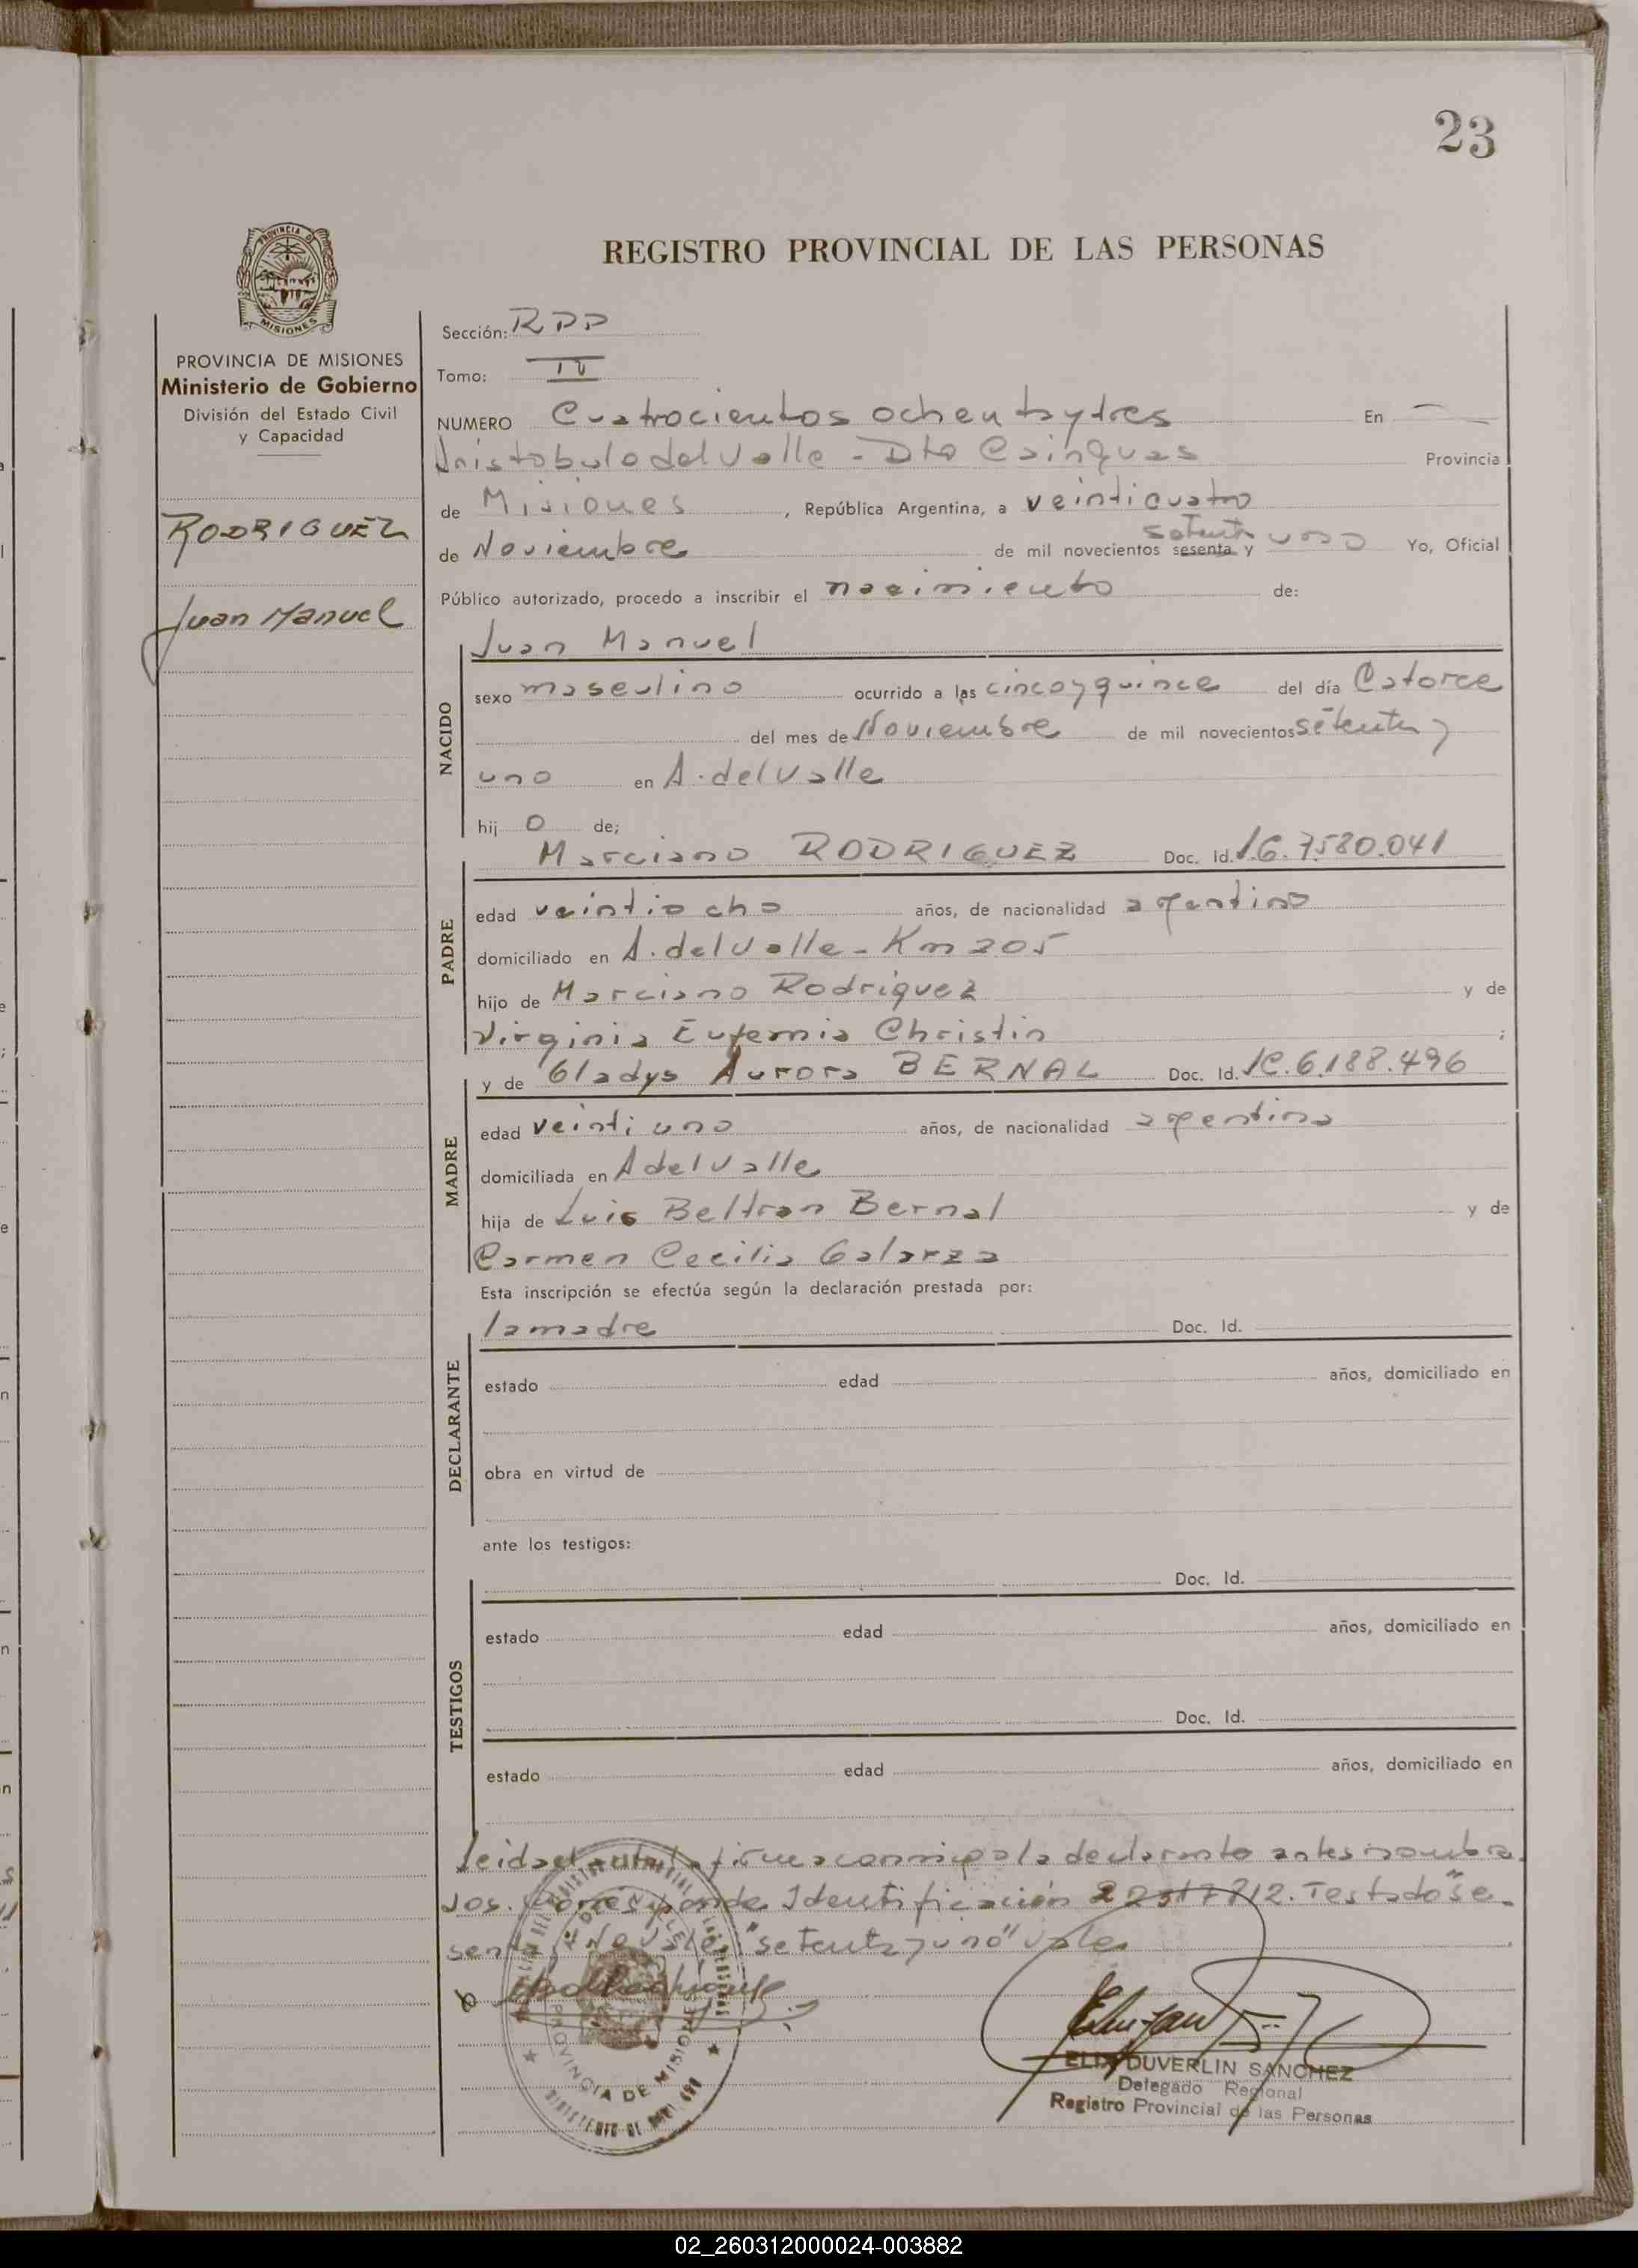 23
REGISTRO PROVINCIAL DE LAS PERSONAS
PROVINCIA DE MISIONES
Ministerio de Gobierno
División del Estado Civil
y Capacidad
RODRIGUEZ
Juan Manuel
Sección: RPP
Tomo: IV
NUMERO Cuatrocientos ochentaytres En —
Aristobulo del Valle - Dto Cainguas Provincia
de Misiones, República Argentina, a veinticuatro
de Noviembre de mil novecientos sesenta y setenta uno Yo, Oficial
Público autorizado, procedo a inscribir el nacimiento de:
NACIDO
Juan Manuel
sexo masculino ocurrido a las cinco y quince del día Catorce
del mes de Noviembre de mil novecientos setenta y
uno en A. del Valle
hij o de;
PADRE
Marciano RODRIGUEZ Doc. Id. 7.580.041
edad veintiocho años, de nacionalidad argentino
domiciliado en A. del Valle - Km 205
hijo de Marciano Rodriguez y de
Virginia Eufemia Christin ;
MADRE
y de Gladys Aurora BERNAL Doc. Id. 6.188.496
edad veintiuno años, de nacionalidad argentina
domiciliada en A del Valle
hija de Luis Beltran Bernal y de
Carmen Cecilia Galarza
Esta inscripción se efectúa según la declaración prestada por:
DECLARANTE
la madre Doc. Id.
estado edad años, domiciliado en
obra en virtud de
ante los testigos:
TESTIGOS
Doc. Id.
estado edad años, domiciliado en
Doc. Id.
estado edad años, domiciliado en
leida el acta la firma conmigo la declarante antes nombra
dos. Corresponde Identificación Testado "se
senta" "setenta y uno" vale
PROVINCIA DE MISIONES
ELIX DUVERLIN SANCHEZ
Delegado Regional
Registro Provincial de las Personas
02_260312000024-003882